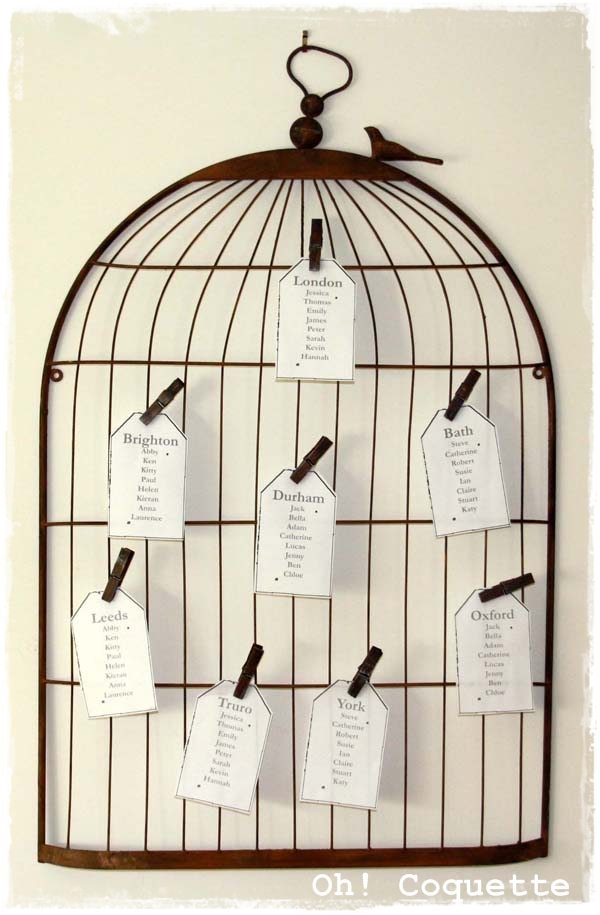 London
Jessica
Thomas
Emily
James
Peter
Sarah
Kevin
Hannah
Brighton
Abby
Ken
Kitty
Paul
Helen
Kieran
Anna
Laurence
Bath
Steve
Catherine
Robert
Susie
Ian
Claire
Stuart
Katy
Durham
Jack
Bella
Adam
Catherine
Lucas
Jenny
Ben
Chloe
Leeds
Abby
Ken
Kitty
Paul
Helen
Kieran
Anna
Laurence
Oxford
Jack
Bella
Adam
Catherine
Lucas
Jenny
Ben
Chloe
Truro
Jessica
Thomas
Emily
James
Peter
Sarah
Kevin
Hannah
York
Steve
Catherine
Robert
Susie
Ian
Claire
Stuart
Katy
Oh! Coquette